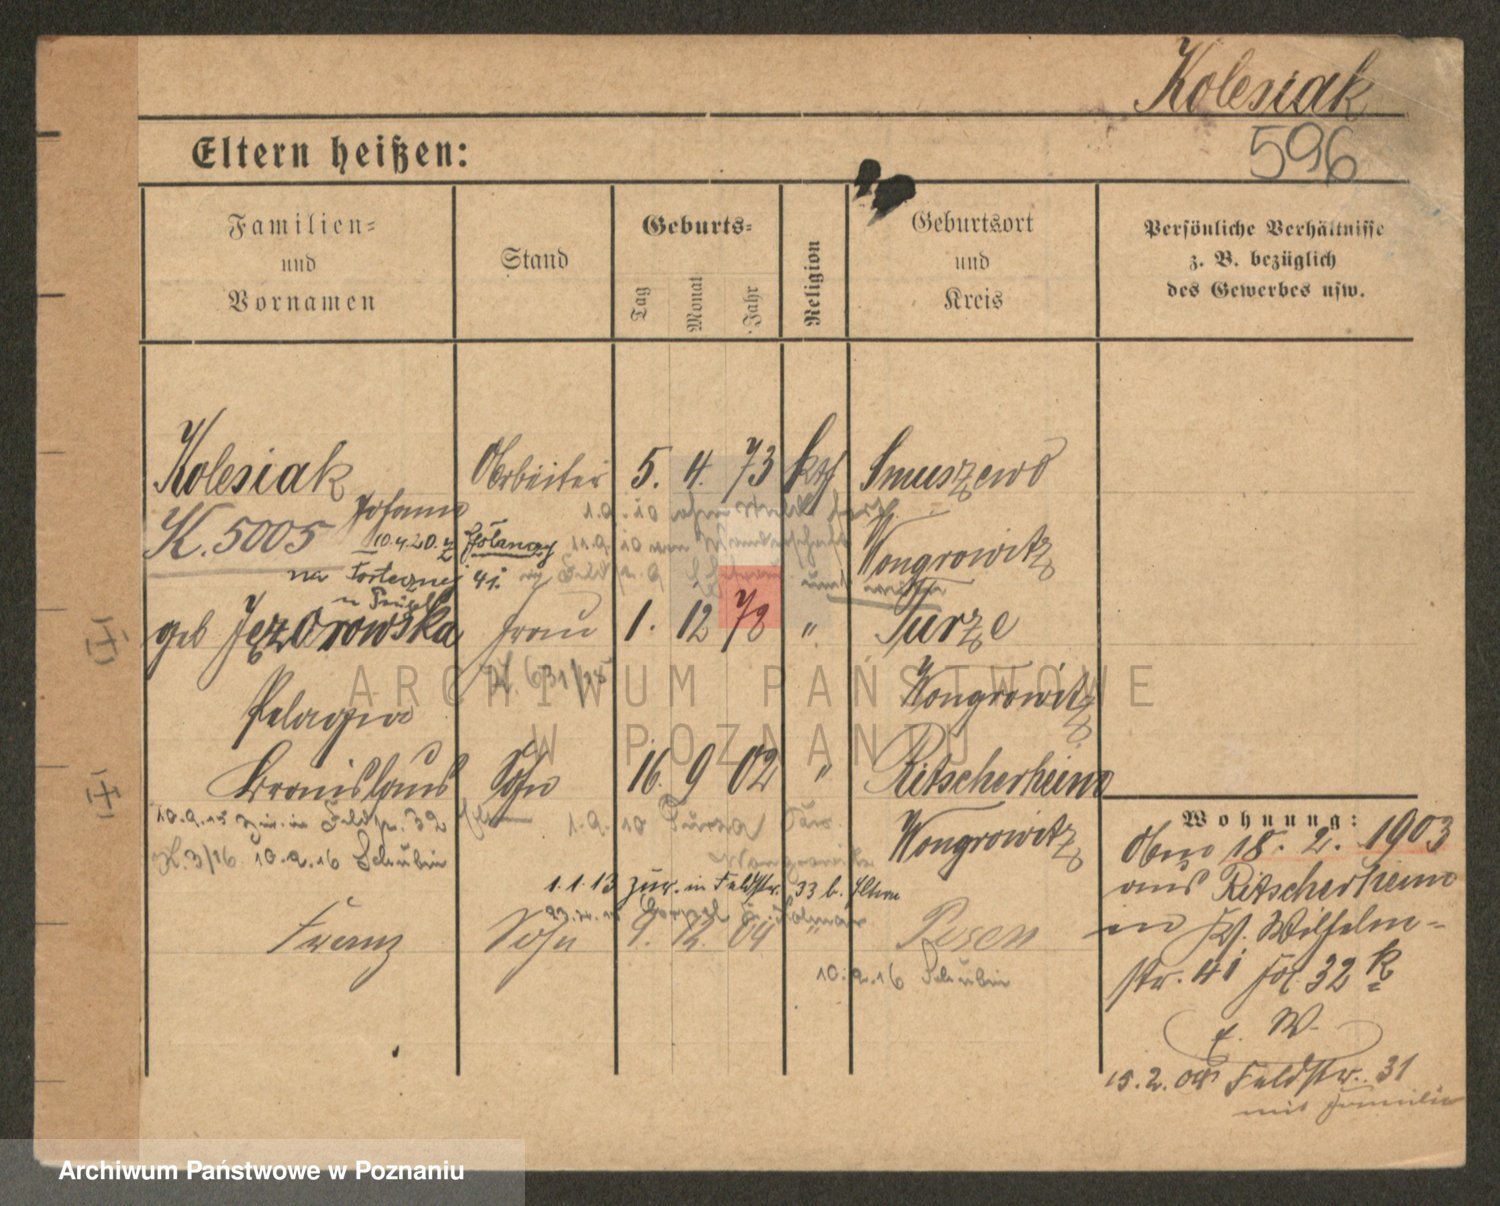 Kolesiak
596
Eltern heißen:
Familien=
und
Vornamen
Stand
Geburts=
Tag
Monat
Jahr
Religion
Geburtsort
und
Kreis
Persönliche Verhältnisse
z. B. bezüglich
des Gewerbes usw.
Kolesiak Arbeiter 5. 4. 73 kth Smuszewo
Johann 1.9.10
K. 5005 10.4.20. 11.9.10 Wongrowitz
na 41.
geb Jezorowska Frau 1. 12 78 " Turze
K. 631/25
Pelagia Wongrowitz
Bronislaus Sohn 16. 9 02 " Ritscherheim
10.9.15 zur. in Feldstr. 32 Eltern 1.9.10 Wongrowitz
K. 3/16 10.9.16 Schubin
1.1.13 zur. in Feldstr. 33 b. Eltern
Franz Sohn 9. 12. 04 " Posen
10.9.16 Schubin
Wohnung:
18. 2. 1903
aus Ritscherheim
in Wilhelm=
str. 41 32
f. W.
15.2.04 Feldstr. 31
mit Familie
ARCHIWUM PAŃSTWOWE
W POZNANIU
Archiwum Państwowe w Poznaniu